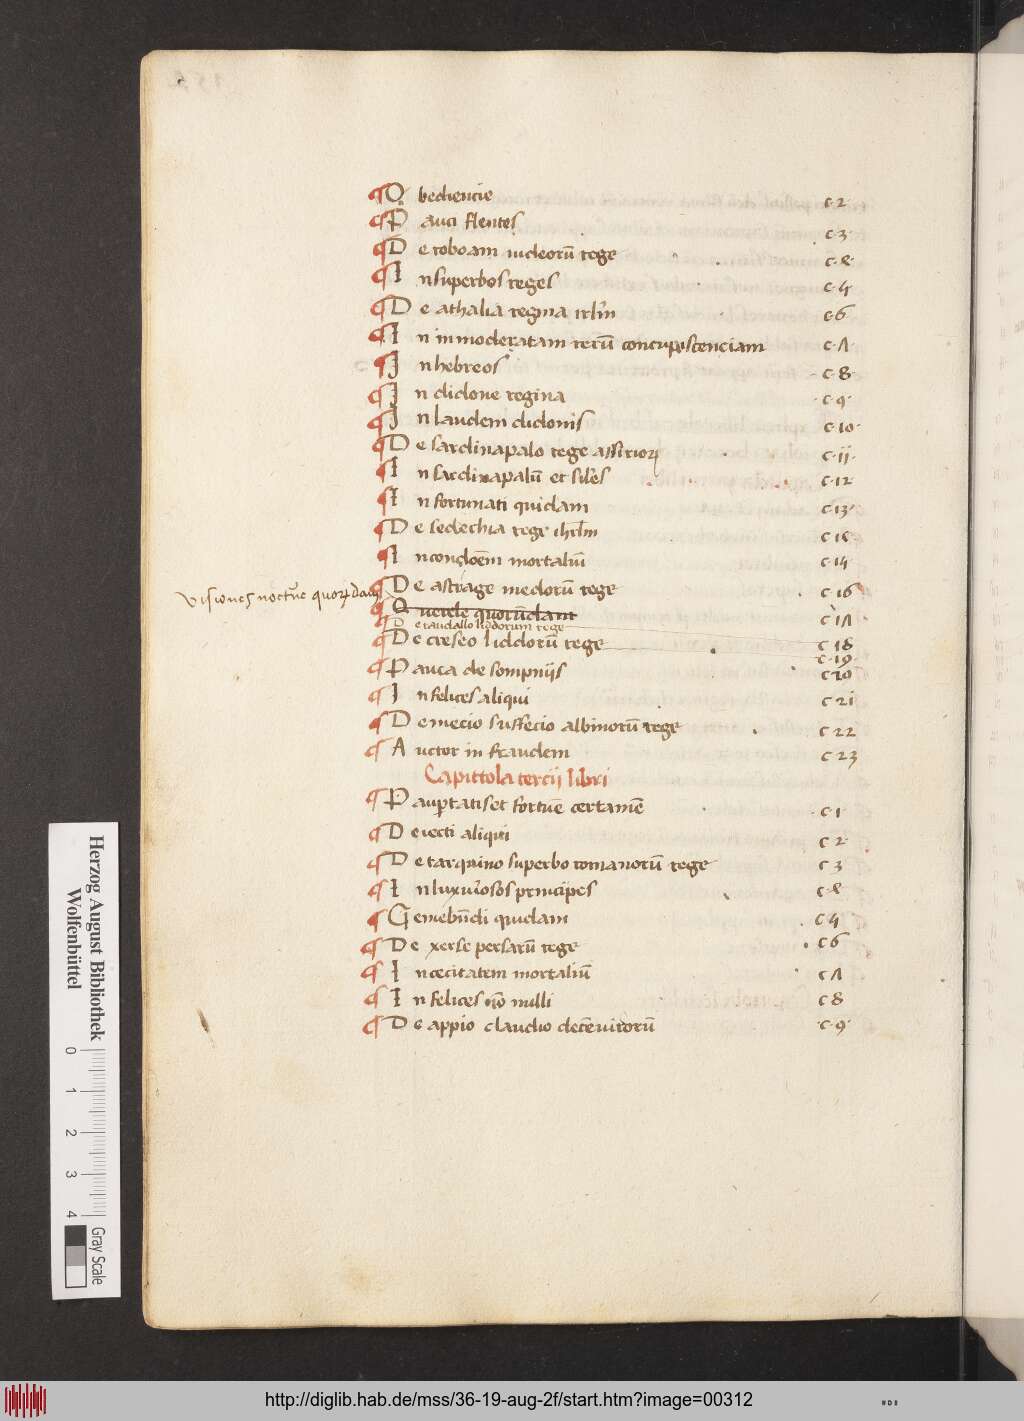 ¶ Obediencie c·2·
¶ Pauci flentes c·3·
¶ De roboam iudeorũ rege c·ꝝ·
¶ In superbos reges c·4
¶ De athalia regina irłm c·6
¶ In inmoderatam rerũ concupiscenciam c·ʌ
¶ In hebreos c·8·
¶ In didone regina c·9·
¶ In laudem didonis c·10·
¶ De sardinapalo rege assirioꝝ c·ii·
¶ In sardinapalũ et siłes c·12
¶ In fortunati quidam c·13·
¶ De sedechia rege ihrłm
¶ In mortaliũ
¶ De astiage medorũ rege c·16
Visiones noctũe quoꝝdam
¶ Querele quorũdam c·1ʌ
De candallo liddorum rege c·18
¶ De creseo liddorũ rege c·19·
¶ Pauca de sompniis c20
¶ In felices aliqui c 21
¶ De mecio suffecio albinorũ rege c 22
¶ Auctor in fraudem c 23
Capittola tercii libri
¶ Pauꝑtatis et fortũe certamẽ c·1
¶ Deiecti aliqui c 2·
¶ De tarquino superbo romanorũ rege c 3
¶ In luxuriosos principes
¶ Gemebũdi quidam c 4
¶ De xerse persarũ rege c 6
¶ In cecitatem mortaliũ c ʌ
¶ In felices nõ nulli c 8
¶ De appio claudio decẽvirorũ ·c·9·
Herzog August Bibliothek
Wolfenbüttel
0 1 2 3 4
Gray Scale
http://diglib.hab.de/mss/36-19-aug-2f/start.htm?image=00312